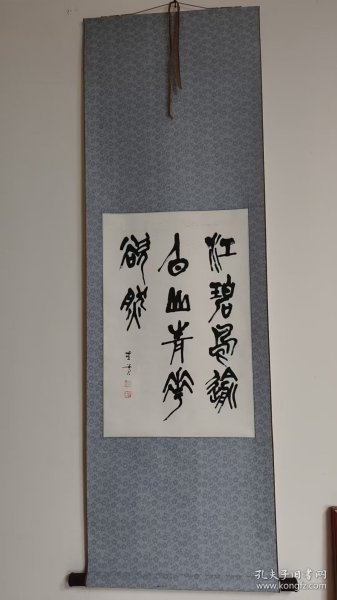 江碧鳥逾
白山青花
欲然
孔夫子旧书网
www.kongfz.com